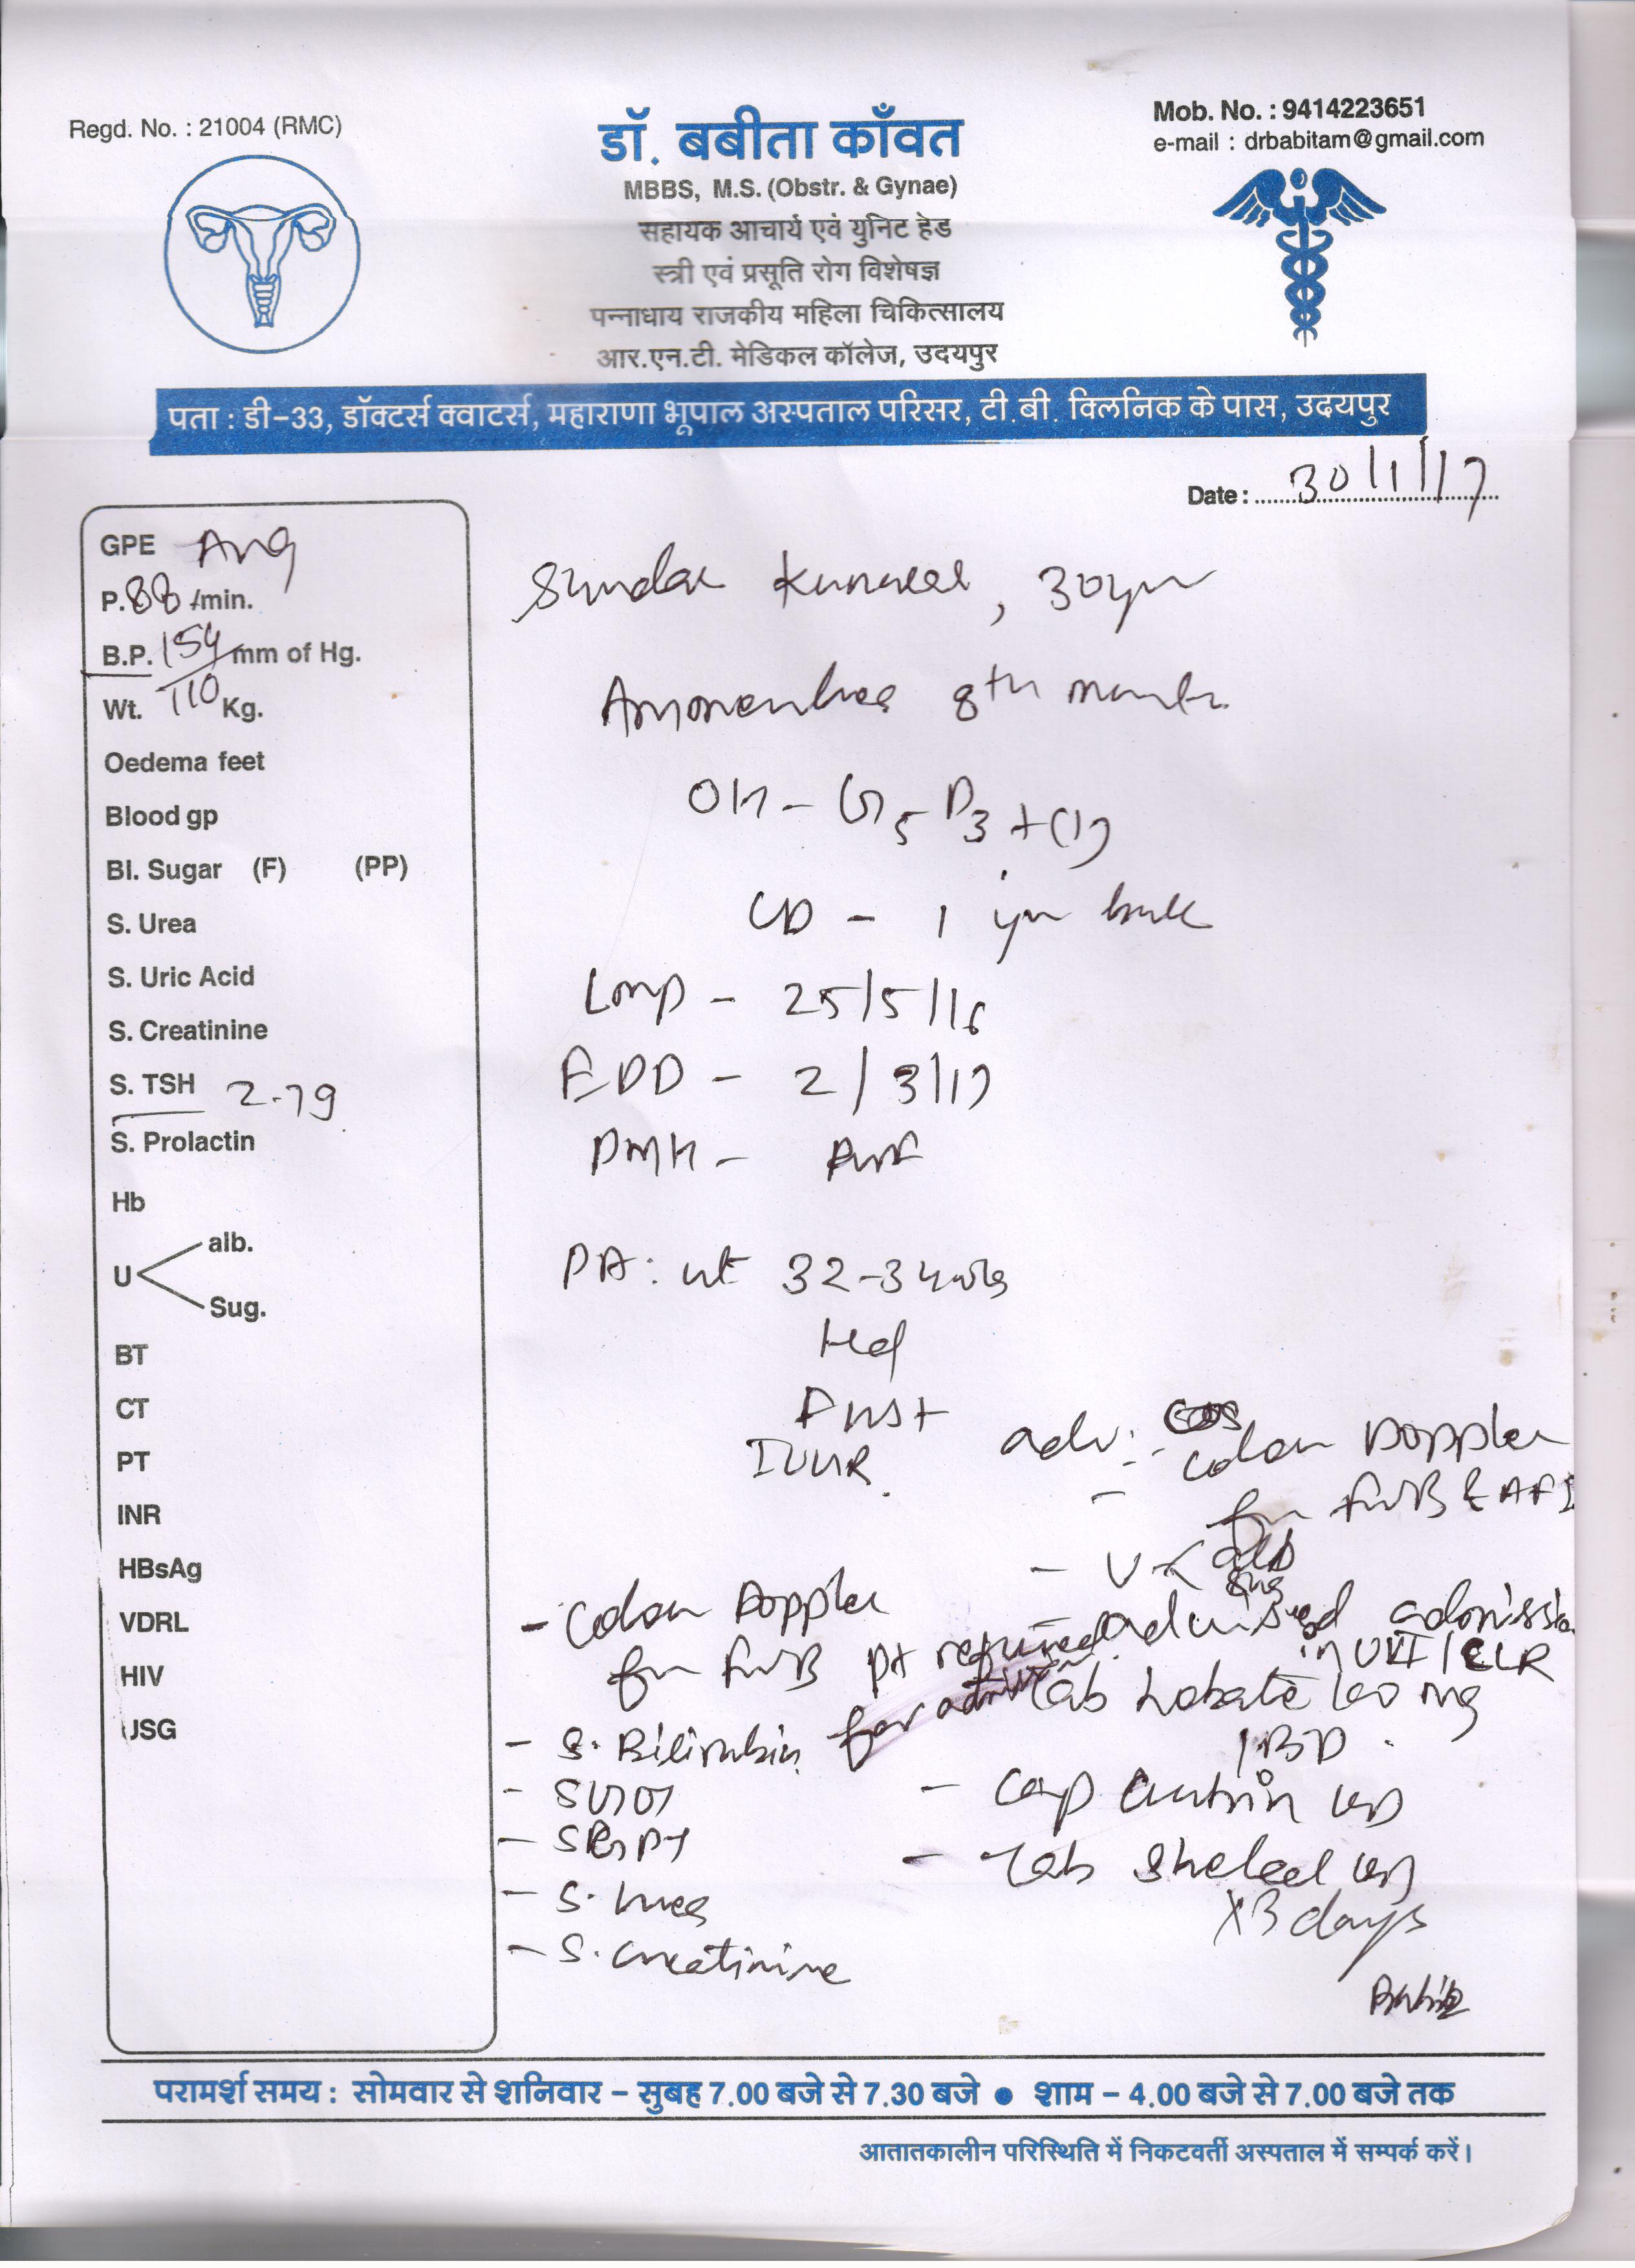 Regd. No. : 21004 (RMC)
डॉ. बबीता काँवत
MBBS, M.S. (Obstr. & Gynae)
सहायक आचार्य एवं युनिट हेड
स्त्री एवं प्रसूति रोग विशेषज्ञ
पन्नाधाय राजकीय महिला चिकित्सालय
आर.एन.टी. मेडिकल कॉलेज, उदयपुर
Mob. No. : 9414223651
e-mail : drbabitam@gmail.com
पता : डी-33, डॉक्टर्स क्वाटर्स, महाराणा भूपाल अस्पताल परिसर, टी.बी. क्लिनिक के पास, उदयपुर
Date : 30/1/17
GPE Avg
P. 88 /min.
B.P. 154/110 mm of Hg.
Wt. Kg.
Oedema feet
Blood gp
Bl. Sugar (F) (PP)
S. Urea
S. Uric Acid
S. Creatinine
S. TSH 2.79
S. Prolactin
Hb
U alb.
Sug.
BT
CT
PT
INR
HBsAg
VDRL
HIV
USG
Sundar, 30yr
8th month
OH - G5 P3 +(1)
LD - 1 yr back
LMP - 25/5/16
EDD - 2/3/17
PMH -
PA: ut 32-34wks
FHS+
IUGR
adv: - Colour Doppler
for FWB & AFI
- U < alb
sug
- Colour Doppler
for FWB
pt refused for admission
advised admission
in
- S. Bilirubin
- SGOT
- SGPT
- S. Urea
- S. Creatinine
Tab Lobate 100 mg
1 BD.
- Cap
- Tab
X3 days
परामर्श समय : सोमवार से शनिवार – सुबह 7.00 बजे से 7.30 बजे ● शाम – 4.00 बजे से 7.00 बजे तक
आतातकालीन परिस्थिति में निकटवर्ती अस्पताल में सम्पर्क करें।